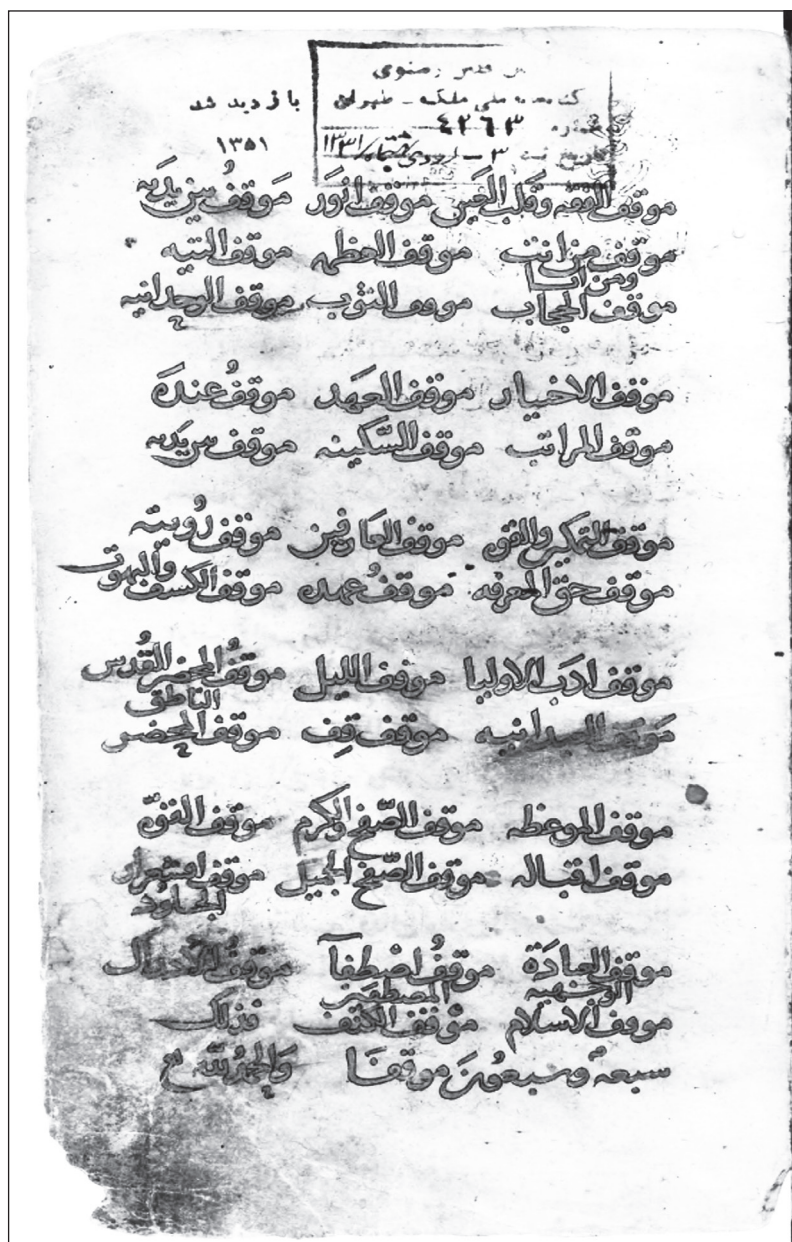 قدس رضوی
کتابخانه ملی ملک - طهران
شماره ٤٢٦٣
تاریخ ثبت ٣ - ١٣٣١
بازدید شد
١٣٥١
موقف الفقه وقلب العين موقف نور موقف بين يديه
موقف من انت ومن انا موقف العظمه موقف التيه
موقف الحجاب موقف الثوب موقف الوحدانيه
موقف الاختيار موقف العهد موقف عنده
موقف المراتب موقف السكينه موقف بين يديه
موقف التمكين والقوه موقف العارفين موقف رويته
موقف حق المعرفه موقف عهده موقف الكشف والبهوت
موقف ادب الاوليا موقف الليل موقف المحضر القدس الناطق
موقف العبدانيه موقف قف موقف المحضر
موقف الموعظه موقف الصفح والكرم موقف القوه
موقف اقباله موقف الصفح الجميل موقف اقشعرار الجلود
موقف العبادة الوجهيه موقف اصطفا المصطفين موقف
موقف الاسلام موقف الكنف فذلك
سبعه وسبعون موقفا والحمد لله